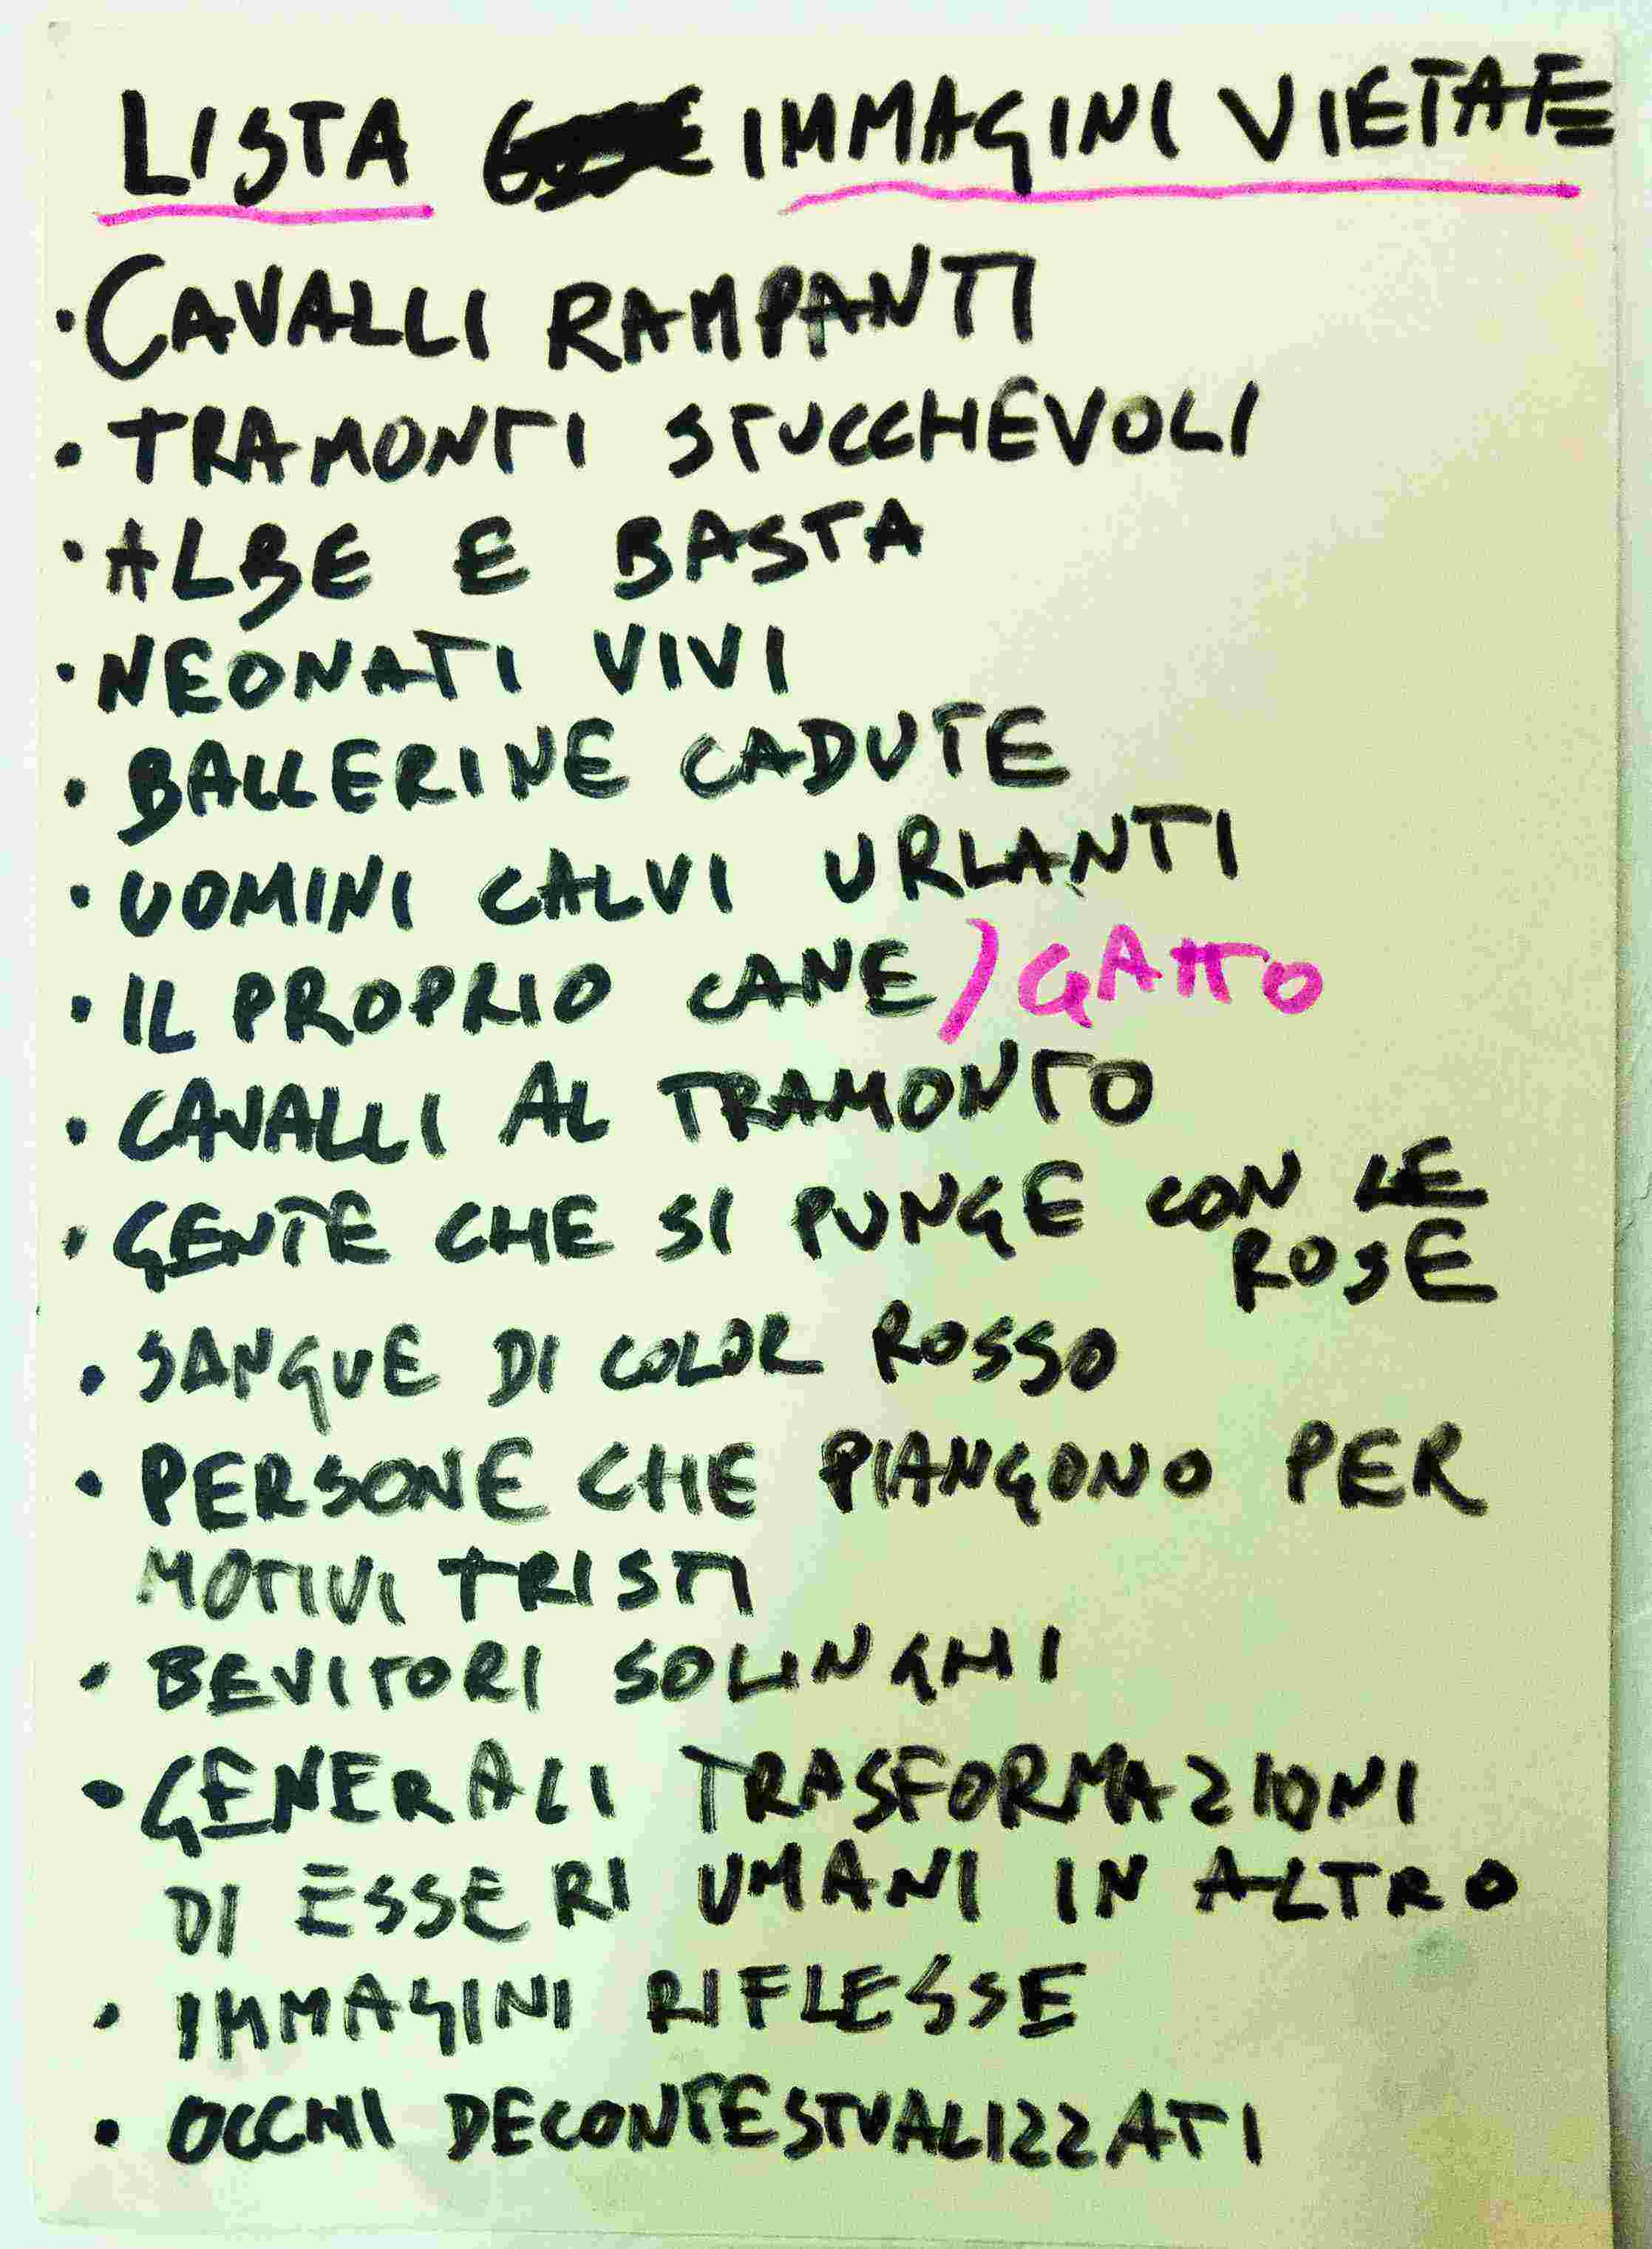 LISTA IMMAGINI VIETATE
• CAVALLI RAMPANTI
• TRAMONTI STUCCHEVOLI
• ALBE E BASTA
• NEONATI VIVI
• BALLERINE CADUTE
• UOMINI CALVI URLANTI
• IL PROPRIO CANE/GATTO
• CAVALLI AL TRAMONTO
• GENTE CHE SI PUNGE CON LE
ROSE
• SANGUE DI COLOR ROSSO
• PERSONE CHE PIANGONO PER
MOTIVI TRISTI
• BEVITORI SOLINGHI
• GENERALI TRASFORMAZIONI
DI ESSERI UMANI IN ALTRO
• IMMAGINI RIFLESSE
• OCCHI DECONTESTUALIZZATI